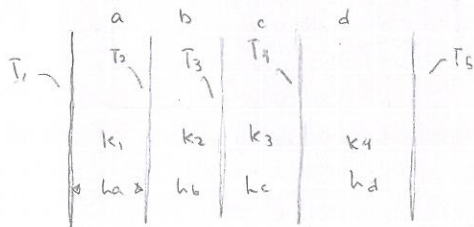 a b c d
T₁ T₂ T₃ T₄ T₅
k₁ k₂ k₃ k₄
ha hb hc hd